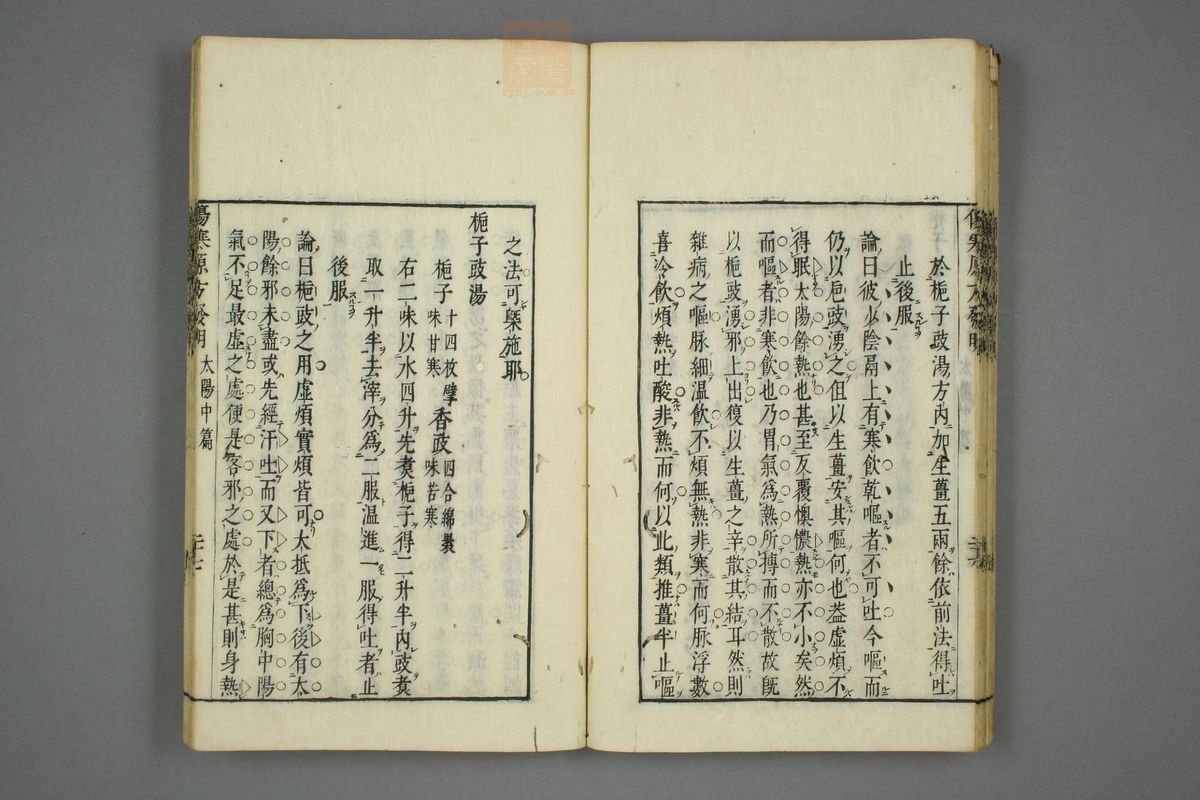 於梔子豉湯方內加生薑五兩餘依前法得吐
止後服
論曰彼少陰鬲上有寒飲乾嘔者不可吐今嘔而
仍以卮豉湧之但以生薑安其嘔何也葢虛煩不
得眠太陽餘熱也甚至反覆懊憹熱亦不小矣然
而嘔者非寒飲也乃胃氣為熱所搏而不散故既
以梔豉湧邪上出復以生薑之辛散其結耳然則
雜病之嘔脉細溫飲不煩無熱非寒而何脉浮數
喜冷飲煩熱吐酸非熱而何以此類推薑半止嘔
之法可槩施耶
梔子豉湯
梔子十四枚擘味甘寒 香豉四合綿裹味苦寒
右二味以水四升先煑梔子得二升半內豉煑
取一升半去滓分爲二服温進一服得吐者止
後服
論曰梔豉之用虛煩實煩皆可太抵爲下後有太
陽餘邪未盡或先經汗吐而又下者總爲胸中陽
氣不足最虛之處便是客邪之處於是甚則身熱
傷寒原方發明 太陽中篇 二十七